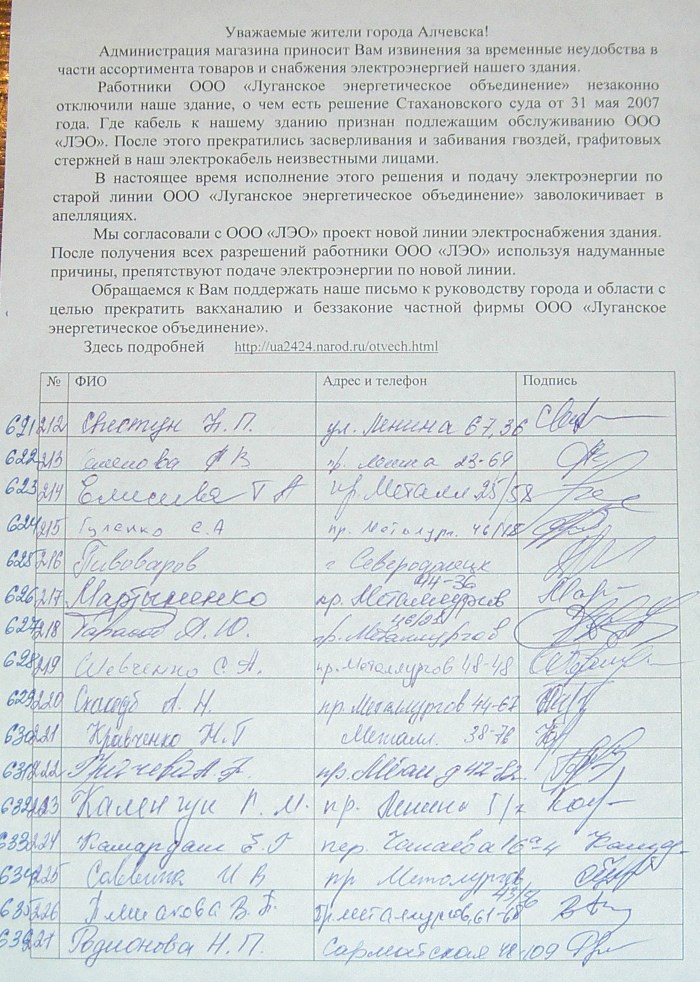 Уважаемые жители города Алчевска!
Администрация магазина приносит Вам извинения за временные неудобства в
части ассортимента товаров и снабжения электроэнергией нашего здания.
Работники ООО «Луганское энергетическое объединение» незаконно
отключили наше здание, о чем есть решение Стахановского суда от 31 мая 2007
года. Где кабель к нашему зданию признан подлежащим обслуживанию ООО
«ЛЭО». После этого прекратились засверливания и забивания гвоздей, графитовых
стержней в наш электрокабель неизвестными лицами.
В настоящее время исполнение этого решения и подачу электроэнергии по
старой линии ООО «Луганское энергетическое объединение» заволокичивает в
апелляциях.
Мы согласовали с ООО «ЛЭО» проект новой линии электроснабжения здания.
После получения всех разрешений работники ООО «ЛЭО» используя надуманные
причины, препятствуют подаче электроэнергии по новой линии.
Обращаемся к Вам поддержать наше письмо к руководству города и области с
целью прекратить вакханалию и беззаконие частной фирмы ООО «Луганское
энергетическое объединение».
Здесь подробней http://ua2424.narod.ru/otvech.html
№ ФИО Адрес и телефон Подпись
621 212 Н. П. ул. Ленина 67,36
622 213 пр. Ленина 23-69
623 214 Т А пр. Металл 25/58
624 215 Гуленко С.А пр. Металург. 46/
625 216 Пивоваров г Северодонецк
626 217 Мартыненко пр. Металлургов 44-36
627 218 Тарасов А. Ю. пр. Металлургов
628 219 Шевченко С А. пр. Металлургов 48-48
629 220 А. Н. пр. Металлургов
630 221 Кравченко Н. П Металл. 38-76
631 222 пр.
632 223 М. пр. Ленина
633 224 Камардаш Е. Г пер. Чапаева 16а-4
634 225 Саввина И В пр Металургов
635 226 В. Б. Пр металлургов, 61-68
636 227 Родионова Н. П. Сарматская 48-109